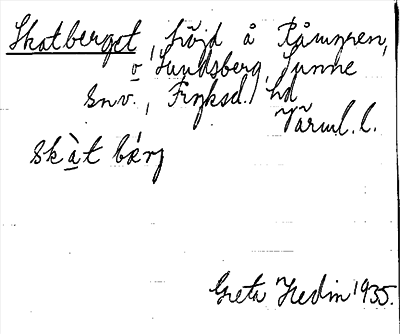 Skatberget, höjd å Råmyren,
o Lundsberg, Sunne
snv., Fryksd. hd
Värml. l.
skàt bærj
Greta Hedin 1935.